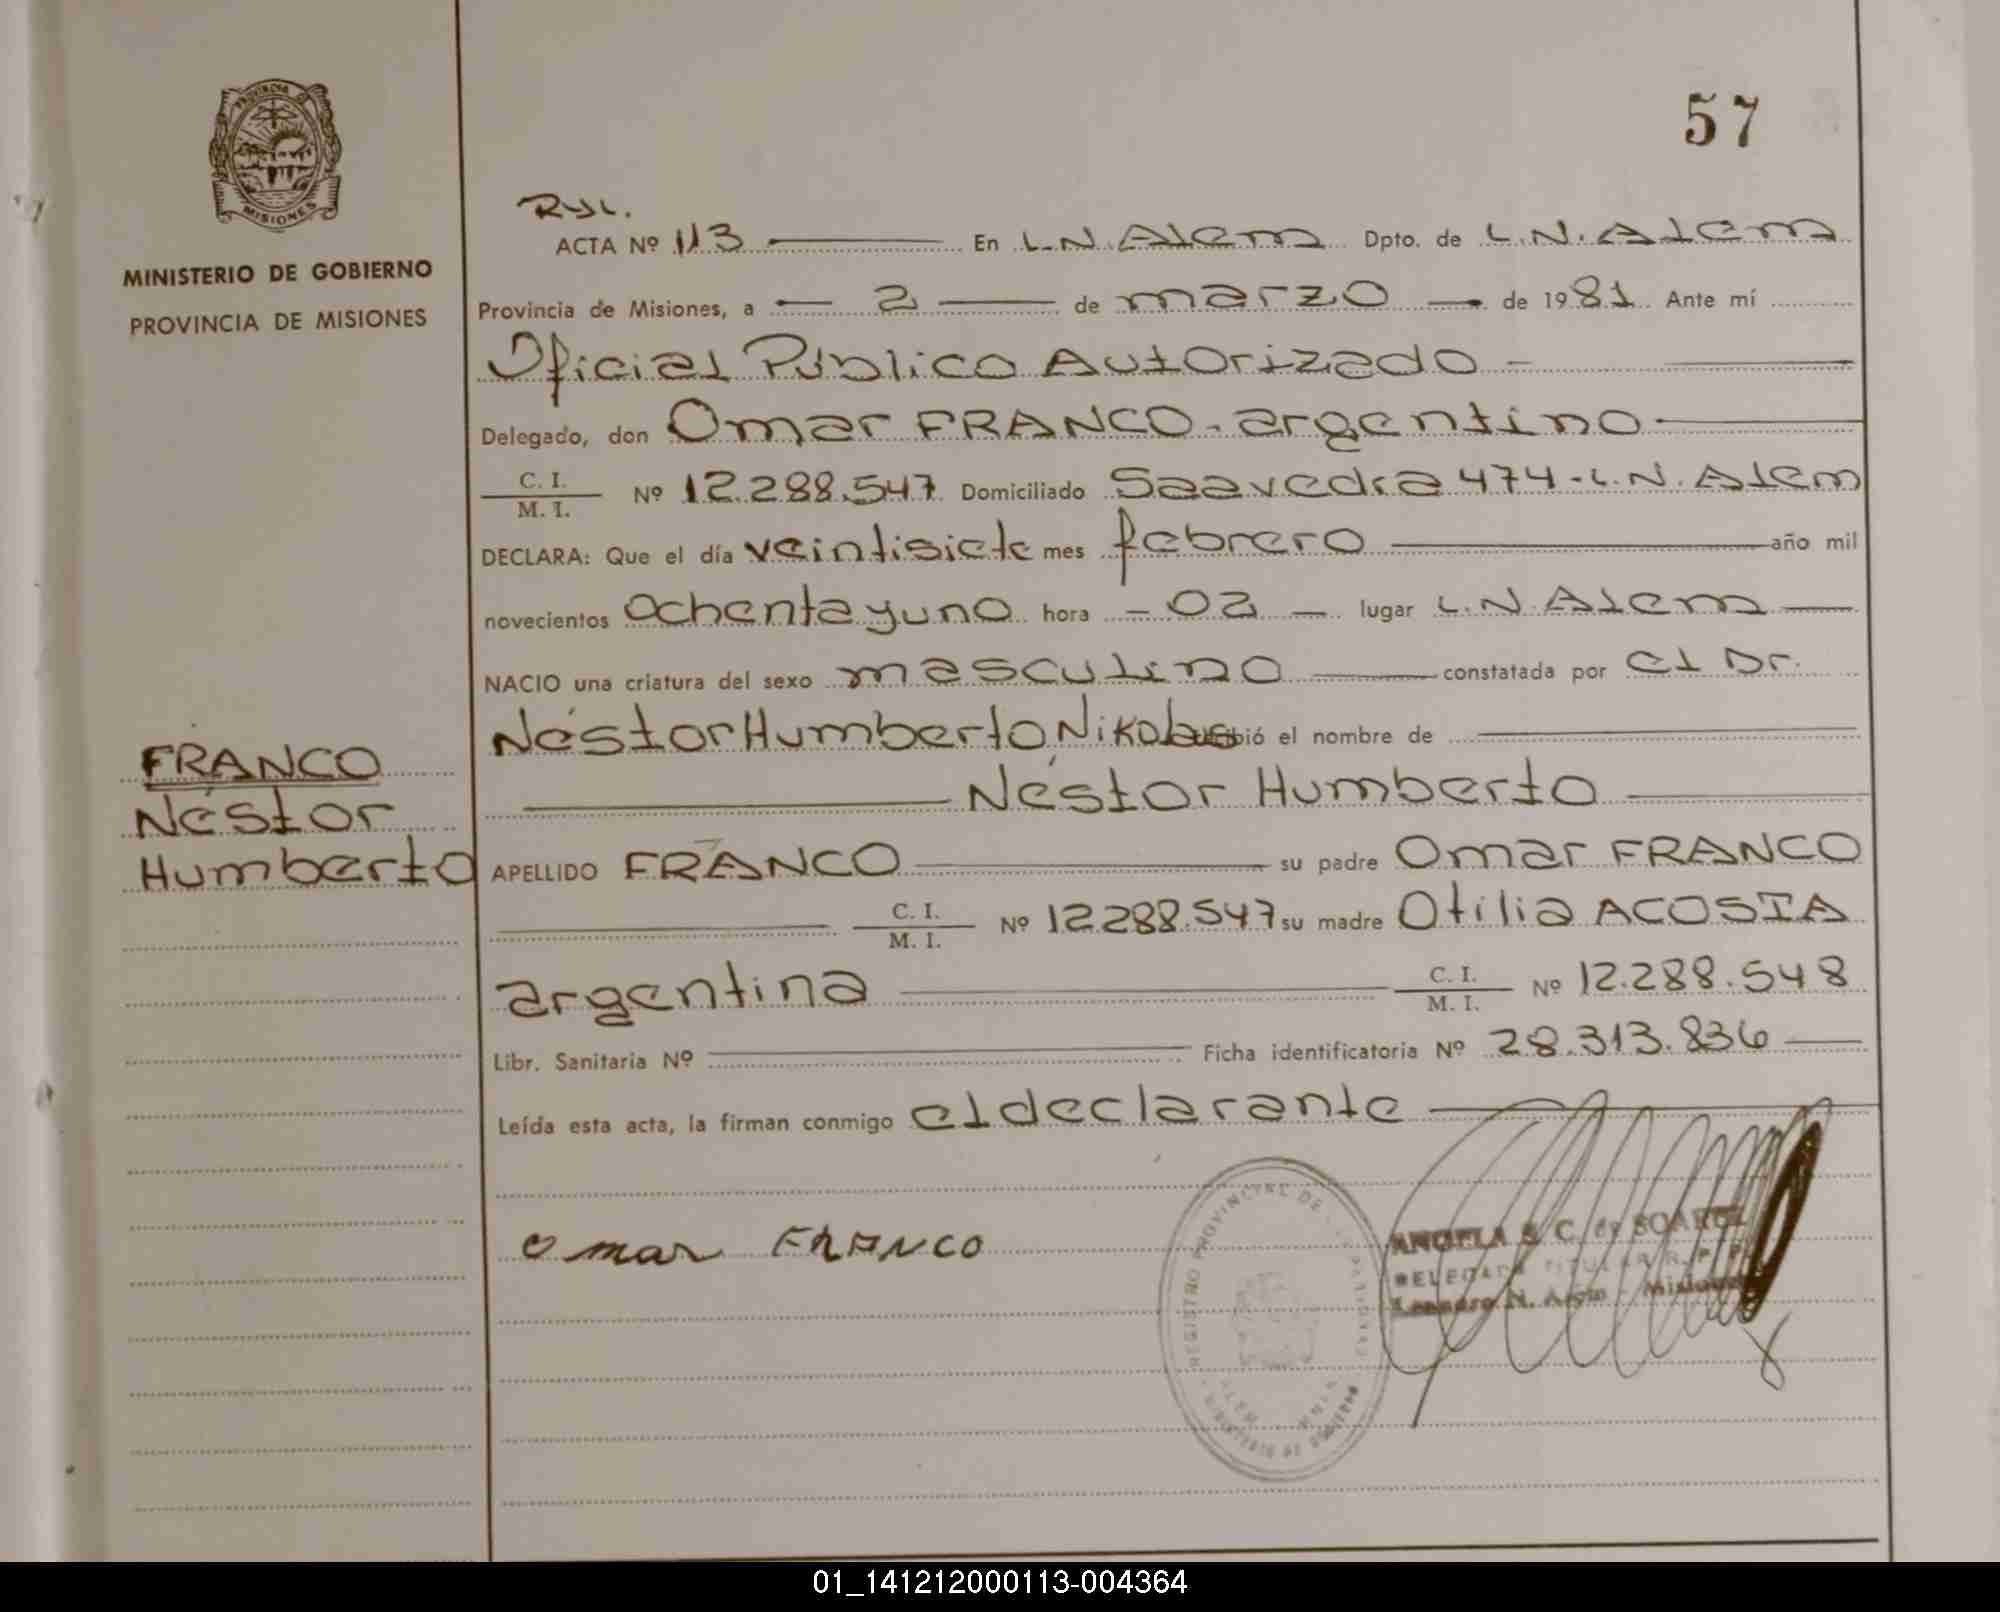 57
PROVINCIA DE
MISIONES
MINISTERIO DE GOBIERNO
PROVINCIA DE MISIONES
ACTA Nº 113 En L.N. Alem Dpto. de L.N. Alem
Provincia de Misiones, a 2 de marzo de 1981 Ante mí
Oficial Público Autorizado
Delegado, don Omar FRANCO - argentino
C. I. / M. I. Nº 12.288.547 Domiciliado Saavedra 474 - L.N. Alem
DECLARA: Que el día veintisiete mes febrero año mil
novecientos ochenta y uno hora 02 lugar L.N. Alem
NACIO una criatura del sexo masculino constatada por el Dr.
Néstor Humberto Nikolaus recibió el nombre de
Néstor Humberto
FRANCO
Néstor
Humberto
APELLIDO FRANCO su padre Omar FRANCO
C. I. / M. I. Nº 12.288.547 su madre Otilia ACOSTA
argentina C. I. / M. I. Nº 12.288.548
Libr. Sanitaria Nº Ficha identificatoria Nº 28.313.836
Leída esta acta, la firman conmigo el declarante
Omar FRANCO
REGISTRO PROVINCIAL DE LAS PERSONAS
MINISTERIO DE GOBIERNO
ANGELA S. C. de SOAREZ
DELEGADA TITULAR R. P. P.
Leandro N. Alem - Misiones
01_141212000113-004364